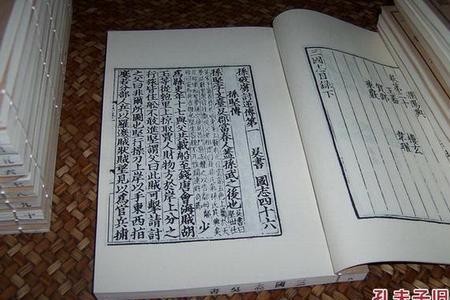 濮陽興
王蕃
樓玄
賀邵
韋曜
華覈
三國志目錄下
孫破虜討逆傳第一 吳書 國志四十六
孫堅傳
孫堅字文臺吳郡富春人蓋孫武之後也 少
爲縣吏年十七與父共載船至錢唐會海賊胡
玉等從匏里上掠取賈人財物方於岸上分之
行旅皆住船不敢進堅謂父曰此賊可擊請討
之父曰非爾所圖也堅行操刀上岸以手東西指
麾若分部人兵以羅遮賊狀賊望見以爲官兵捕
三國志 吳書
孔夫子旧